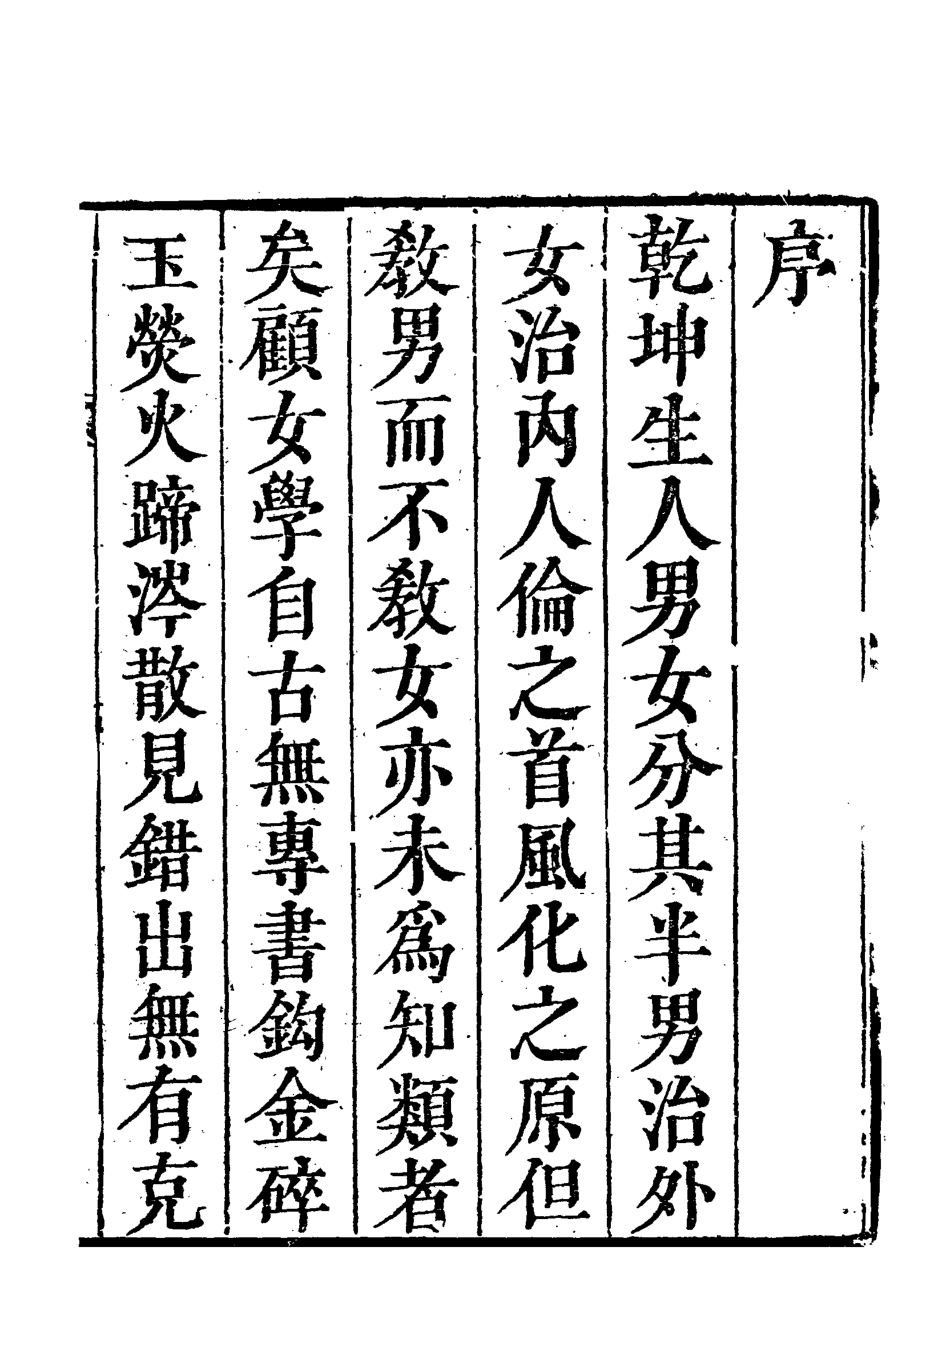 序
乾坤生人男女分其半男治外
女治內人倫之首風化之原但
教男而不教女亦未爲知類者
矣顧女學自古無專書鈎金碎
玉熒火蹄涔散見錯出無有克